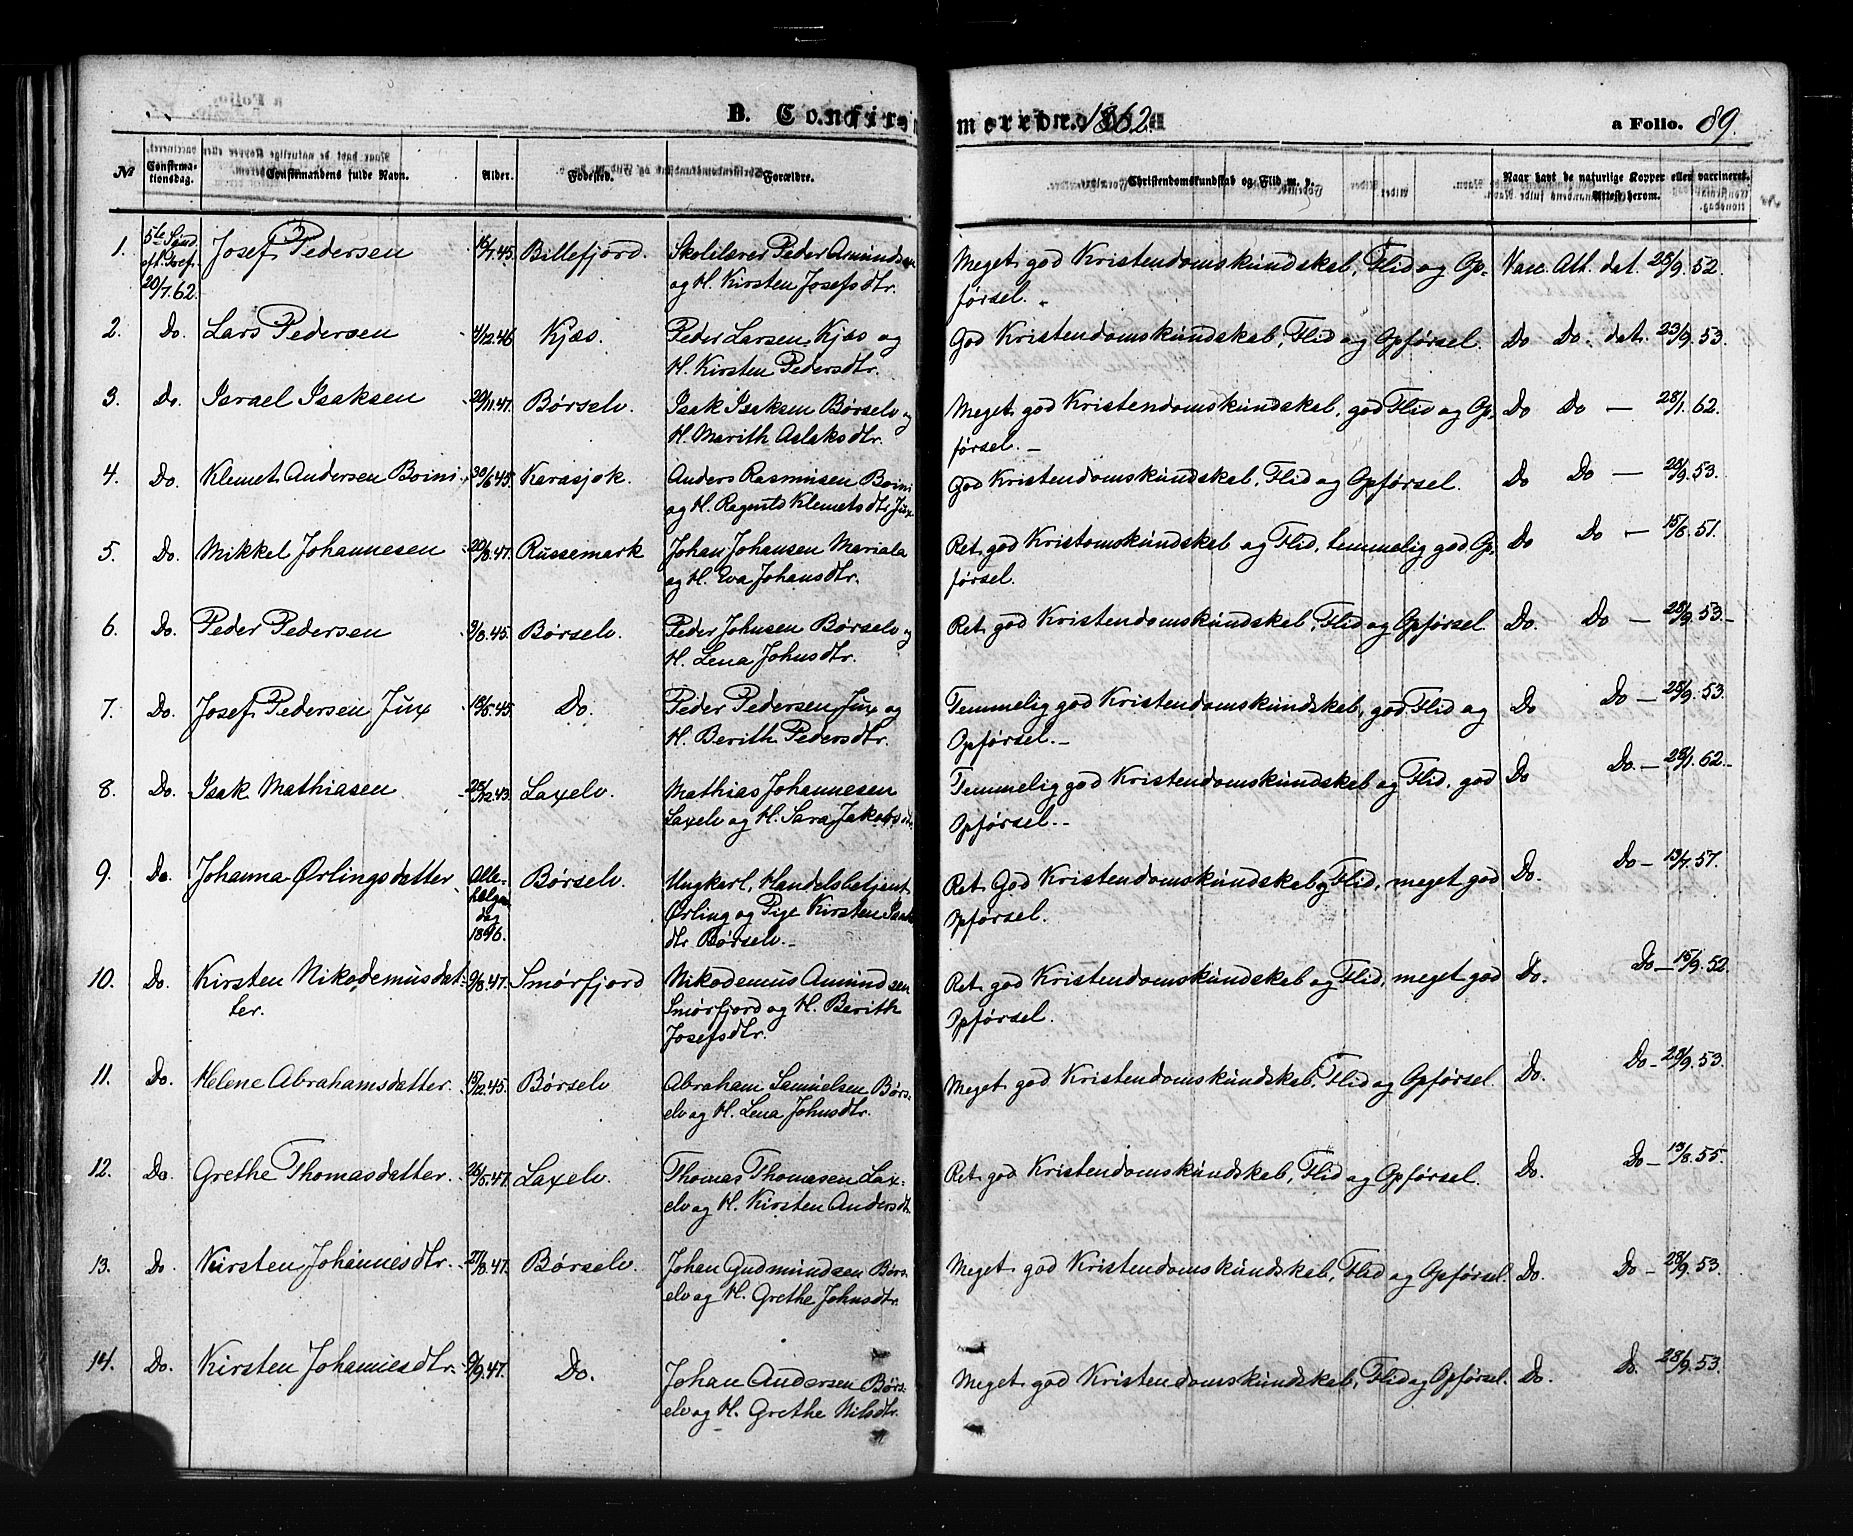 B. Confirmerede. 1862. a Folio. 89.
№ Confirma-tionsdag. Confirmandens fulde Navn. Alder. Fødested. Forældre. Christendomskundskab og Flid m. v. Naar havt de naturlige Kopper eller vaccineret. Attest herom.
1. 5te Sønd. eft. Tref. 20/7.62. Josef Pedersen 45. Billefjord. Skolelærer Peder Amundsen Meget god Kristendomskundskab, Flid og Op- Vacc. Att. dat. 28/9.52.
og H. Kirsten Josefsdtr. førsel.
2. Do. Lars Pedersen 4/12.46 Kjæs. Peder Larsen Kjæs og God Kristendomskundskab, Flid og Opførsel. Do Do. dat. 23/9.53.
H. Kirsten Pedersdtr.
3. Do. Israel Isaksen 20/11.47. Børselv. Isak Isaksen Børselv og Meget god Kristendomskundskab, god Flid og Op- Do Do — 28/1.62.
H. Marith Aslaksdtr. førsel.—
4. Do. Klemet Andersen Boini 30/6.45. Karasjok. Anders Rasmusen Boini God Kristendomskundskab, Flid og Opførsel. Do Do — 28/9.53.
og H. Ragnild Klemetsdtr Jux
5. Do. Mikkel Johannesen 20/8.47. Russemark Johan Johansen Mariala Ret god Kristomskundskab og Flid, temmelig god Op- Do Do — 15/8.51.
og H. Eva Johansdtr. førsel.
6. Do. Peder Pedersen 9/8.45. Børselv. Peder Johnsen Børselv og Ret god Kristendomskundskab, Flid og Opførsel. Do. Do — 28/9.53.—
H. Lena Johnsdtr.
7. Do. Josef Pedersen Jux 45. Do. Peder Pedersen Jux og Temmelig god Kristendomskundskab, god Flid og Do Do — 28/9.53.
H. Berith Pedersdtr. Opførsel.—
8. Do. Isak Mathiasen 28/12.43. Laxelv. Mathias Johannesen Temmelig god Kristendomskundskab og Flid, god Do Do.— 28/1.62.—
Laxelv og H. Sara Jakobsdtr. Opførsel.—
9. Do Johanna Ørlingsdatter Alle-helgendag 1846. Børselv. Ungkarl, Handelsbetjent Ret God Kristendomskundskab og Flid, meget god Do. Do — 13/7.57.
Ørling og Pige Kirsten Isaks- Opførsel.
dtr Børselv.—
10. Do. Kirsten Nikodemusdat- 9/8.47. Smørfjord Nikodemus Amundsen Ret god Kristendomskundskab og Flid, meget god Do. Do — 15/9.52.
ter. Smørfjord og H. Berith Opførsel.
Josefsdtr.
11. Do. Helene Abrahamsdatter. 15/12.45. Børselv Abraham Samuelsen Børs- Meget god Kristendomskundskab, Flid og Opførsel. Do. Do — 28/9.53.
elv og H. Lena Johnsdtr.
12. Do. Grethe Thomasdatter. 47. Laxelv. Thomas Thomasen Lax- Ret god Kristendomskundskab, Flid og Opførsel. Do. Do — 13/8.55.
elv og H. Kirsten Andersdtr.
13. Do. Kirsten Johannesdtr. 27/8.47. Børselv. Johan Gudmundsen Børs- Meget god Kristendomskundskab, Flid og Opførsel. Do. Do — 28/9.53.
elv og H. Grethe Johnsdtr.
14. Do. Kirsten Johannesdtr. 9/9.47. Do. Johan Andersen Børs- Meget god Kristendomskundskab, Flid og Opførsel. Do. Do. 28/9.53.
elv og H. Grethe Nilsdtr.